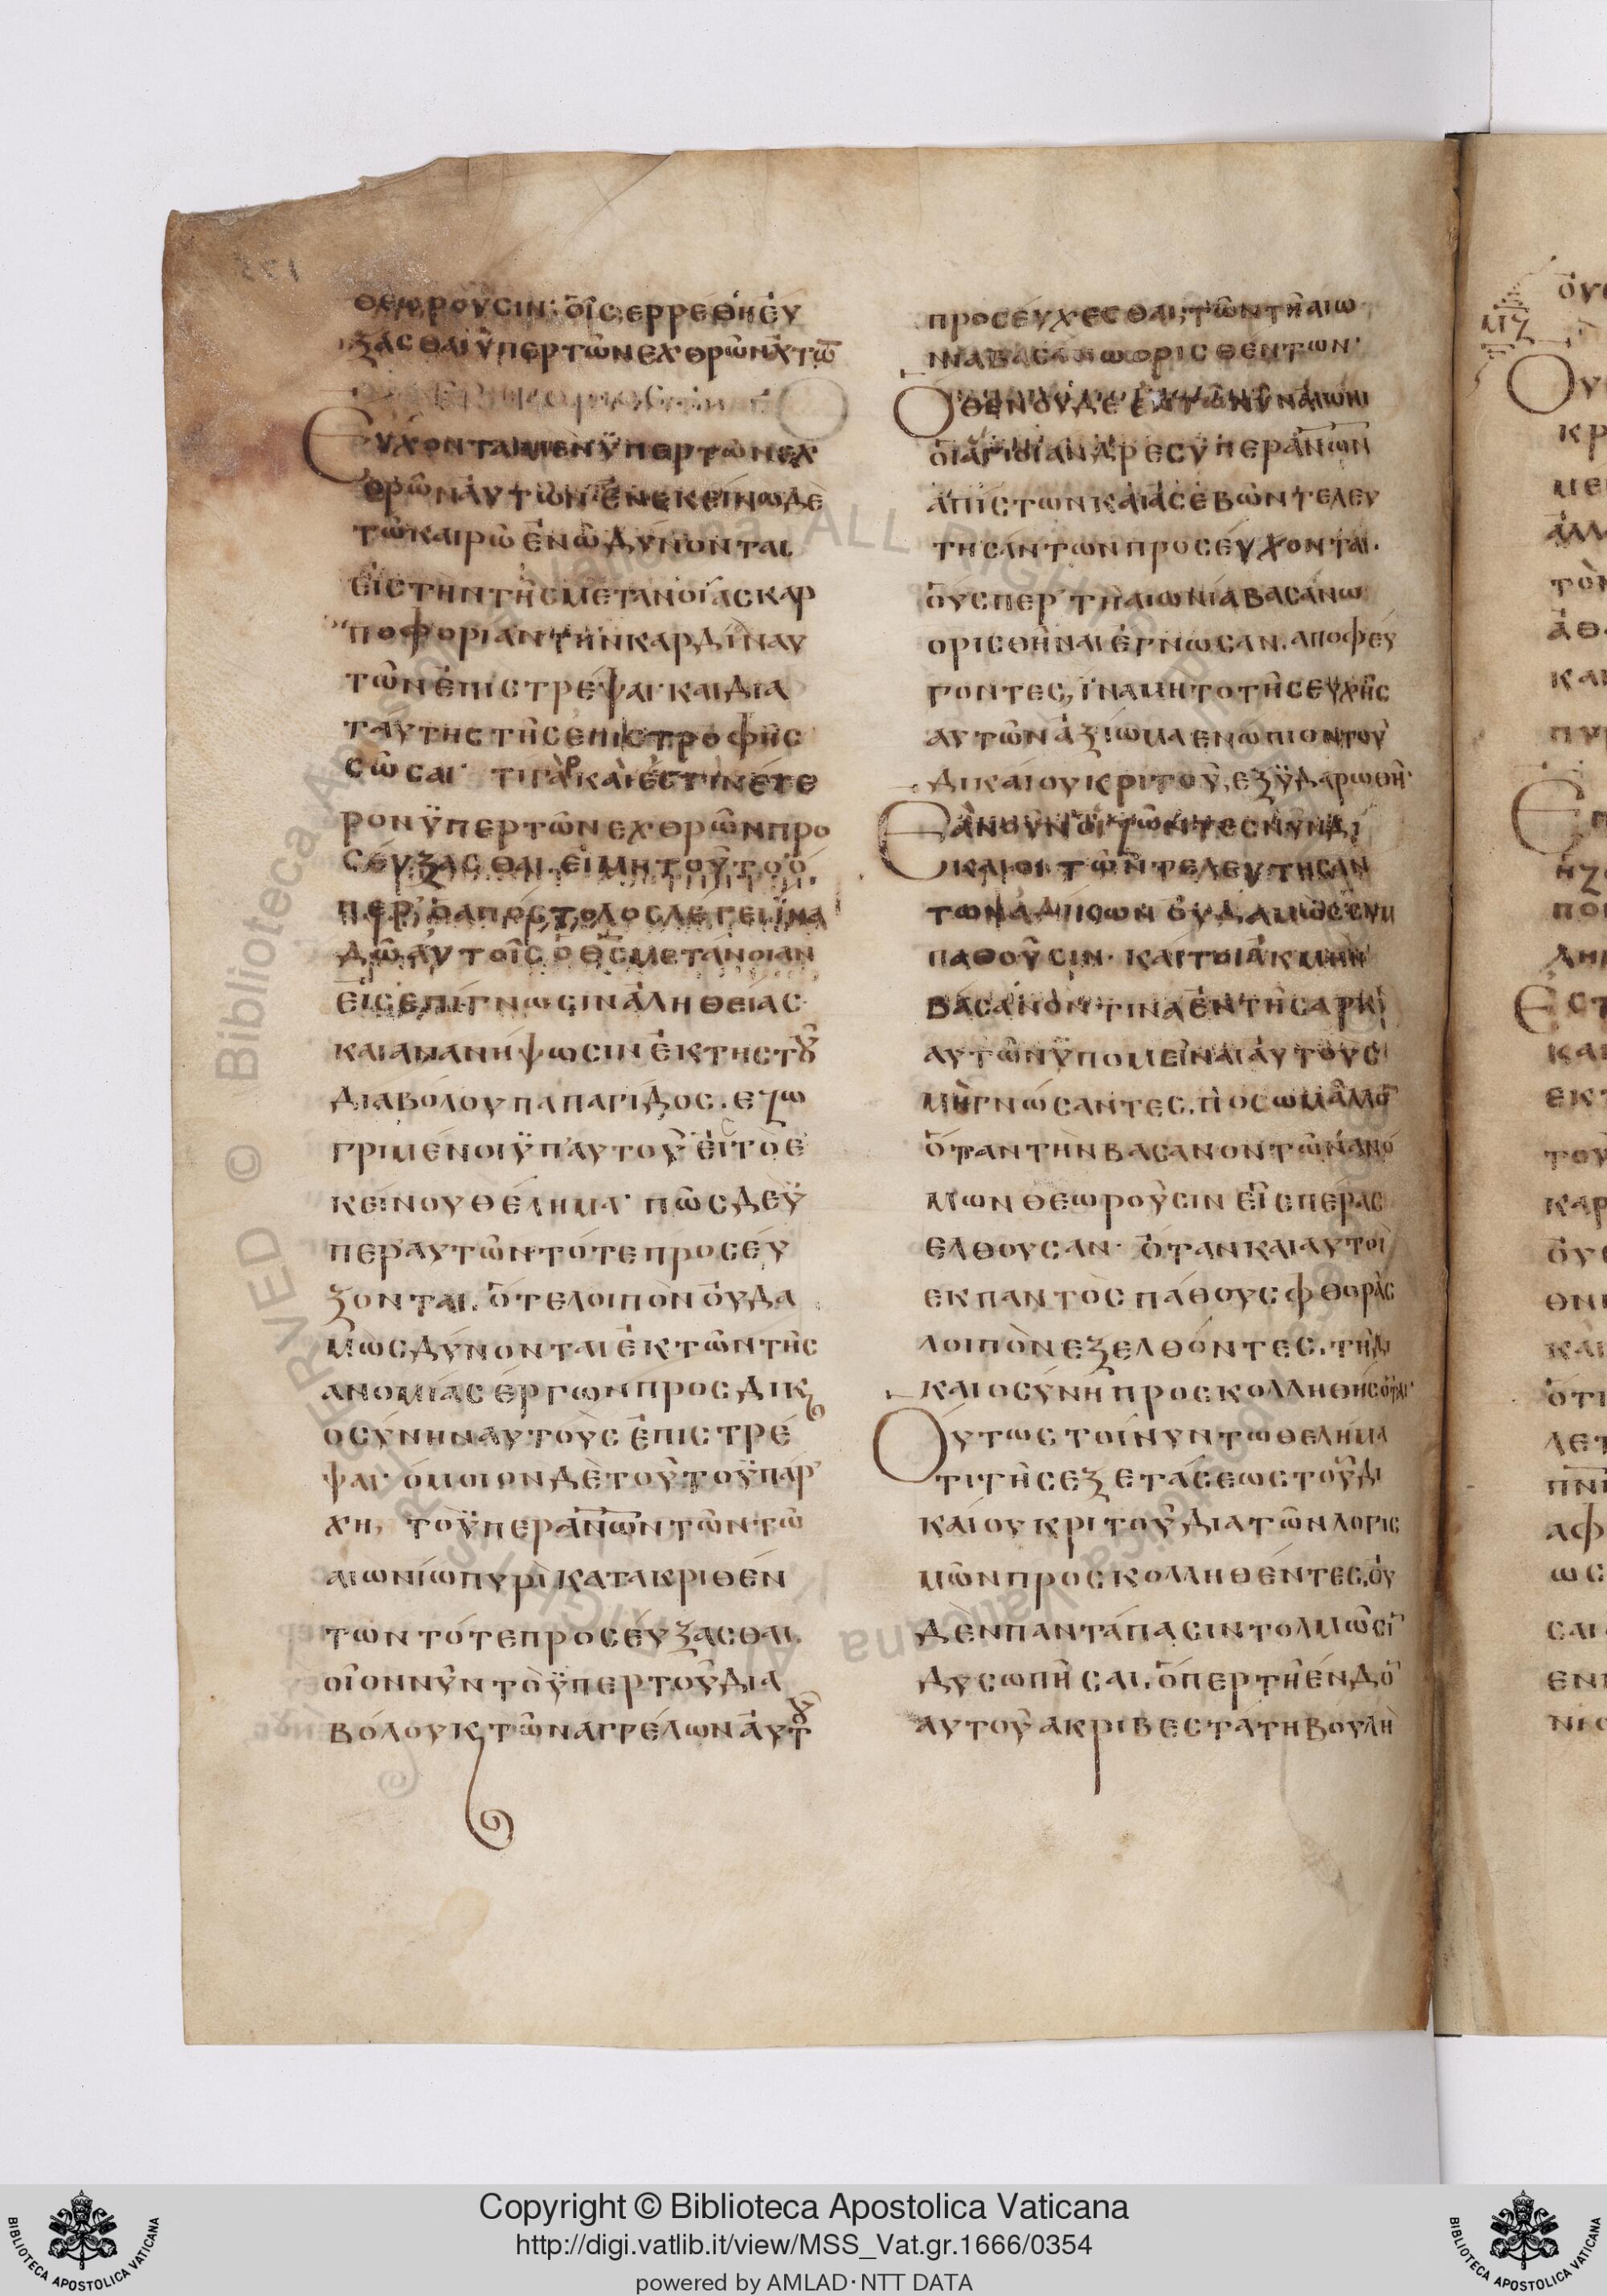 θεωρουσιν· οἷς ερρέθη έυ
ξασθαι ϋπερ τῶν εχθρῶν
Ευχονται μεν ϋπερ των εχ
θρῶν ἀυτῶν ἐν εκείνω δὲ
τῶ καιρῶ ἐν ὧ δύνονται
εἰς τὴν τῆς μετανοίας καρ
ποφοριαν τὴν καρδίναυ
τῶν ἐπιστρέψαι· και δια
ταυτης τῆς ἐπιστροφῆς
σῶσαι· τι γὰρ και εστιν έτε
ρον ϋπερ τῶν εχθρῶν προ
σεύξασθαι. εἰ μη τοῦτο ὁ
περ ὁ απόστολος λέγει ϊνα
δῶ ἀυτοῖς ὁ θ̅ς̅ μετάνοιαν
εἰς ἐπίγνωσιν ἀληθείας·
και ανανήψωσιν ἐκ της τȣ͂
διαβόλου παπαγίδος. εζω
γριμένοι ϋπ' αυτοῦ εἰς τὸ ε
κείνου θέλημα· πῶς δε ϋ
περ αυτῶν τότε προσεύ
ξονται. ὅτε λοιπὸν ὀυδα
μῶς δύνονται ἐκ τῶν τῆς
ανομίας έργων προς δικ
οσύνην αυτοὺς ἐπιστρέ
ψαι· ὁμοιον δὲ τοῦτο ϋπάρ
χη, το ϋπερ α̅ν̅ω̅ν̅ τῶν τῶ
αιωνίω πυρὶ κατακριθέν
των τότε προσεύξασθαι.
οἷον νῦν τὸ ϋπερ τοῦ δια
βόλου κ τῶν αγγέλων ἀυτȣ͂
προσεύχεσθαι, τῶν τῆ αιω
νια βασάνω ορισθεντων·
Οθεν ουδε επι τῶν νῦν
ὁι ἁγιοι ανδρες ϋπερ α̅ν̅ω̅ν̅
ἀπίστων και ἀσεβῶν τελευ
τησάντων προσέυχονται.
ὅυσπερ τῆ αιωνία βασάνω
ορισθῆναι έγνωσαν. αποφεύ
γοντες, ϊνα μη το τῆς ευχῆς
αυτῶν ἀξίωμα ενώπιον τοῦ
δικαίου κριτοῦ, εξϋδαρωθῆ·
Εὰν οὖν ὁι ζῶντες νῦν δι
καιοι τῶν τελευτησαν
των ἀδίκων ὀυδαμῶς συμ
παθοῦσιν· καιτοι ἀκμὴν
βάσανόν τινα ἐν τῆ σαρκὶ
αυτῶν ϋπομεῖναι ἀυτοὺς
μὴ γνώσαντες. πόσω μᾶλλο̅
ὅταν τὴν βασανον τῶν ἀνό
μων θεωροῦσιν εἰς πέρας
ελθουσαν· ὅταν και αυτοὶ
εκ παντὸς πάθους φθορᾶς
λοιπὸν εξελθόντες. τῆ δι
καιοσύνη προσκολληθήσονται·
Ουτως τοίνυν τω θελήμα
τι τῆς εξετάσεως τοῦ δι
καίου κριτοῦ, δια τῶν λογισ
μῶν προσκολληθέντες, ὀυ
δὲν παντάπασιν τολμῶσι̅
δυσωπῆσαι. ὅπερ τῆ ένδο̅
αυτοῦ ακριβεστατη βουλῆ
Copyright © Biblioteca Apostolica Vaticana
http://digi.vatlib.it/view/MSS_Vat.gr.1666/0354
powered by AMLAD·NTT DATA
BIBLIOTECA APOSTOLICA VATICANA
BIBLIOTECA APOSTOLICA VATICANA